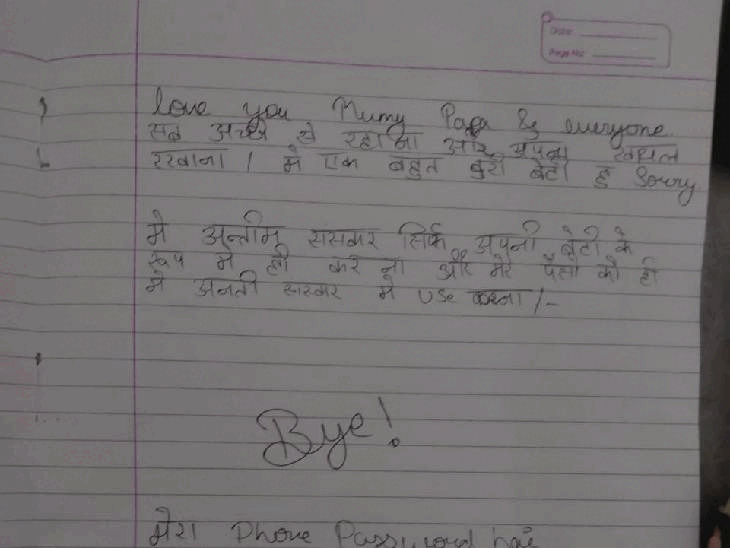 Date:
Page No:
love you Mumy Papa & everyone
सब अच्छे से रहाना और अपना ख्याल
रखाना। मे एक बहुत बुरी बेटी हूँ Sorry
मे अन्तीम संस्कार सिर्फ अपनी बेटी के
रूप मे ही करना और मेरे पैसो को ही
मे use करना /-
Bye!
मेरा Phone Password hai